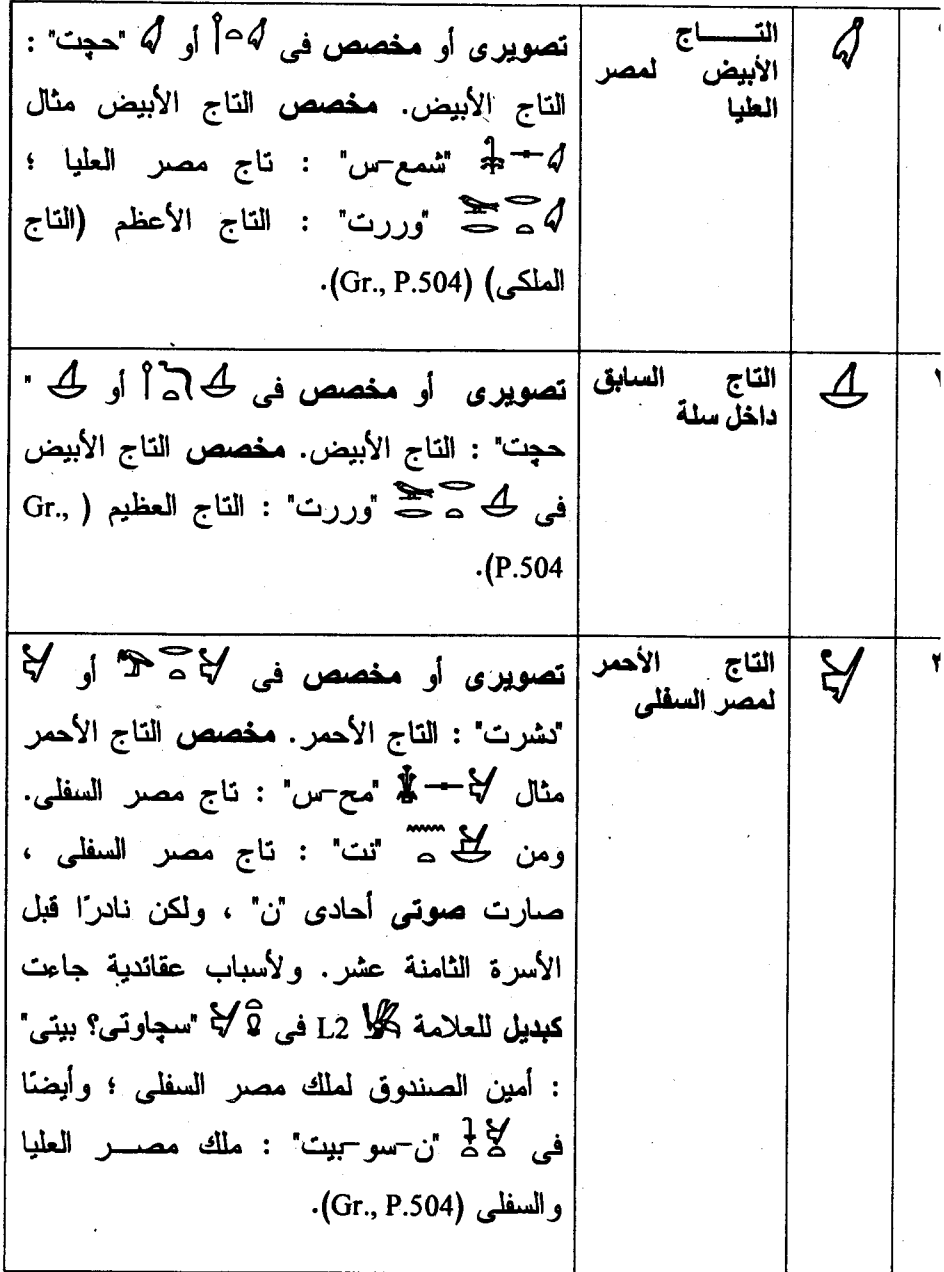 التـــــاج
الأبيض لمصر
العليا
تصويرى أو مخصص فى 𓋑𓏏𓌉 أو 𓋑 "حچت" :
التاج الأبيض. مخصص التاج الأبيض مثال
𓋑𓊃𓇗 "شمع-س" : تاج مصر العليا ؛
𓋑 "وررت" : التاج الأعظم (التاج
الملكى) (Gr., P.504).
التاج السابق
داخل سلة
تصويرى أو مخصص فى 𓋒 أو 𓋒 "
حچت" : التاج الأبيض. مخصص التاج الأبيض
فى 𓋒 "وررت" : التاج العظيم ( Gr.,
P.504).
التاج الأحمر
لمصر السفلى
تصويرى أو مخصص فى 𓋔 أو 𓋔
"دشرت" : التاج الأحمر. مخصص التاج الأحمر
مثال 𓋔𓊃 "مح-س" : تاج مصر السفلى.
ومن 𓋕𓏏𓈖 "نت" : تاج مصر السفلى ،
صارت صوتى أحادى "ن" ، ولكن نادرًا قبل
الأسرة الثامنة عشر. ولأسباب عقائدية جاءت
كبديل للعلامة 𓆤 L2 فى 𓋔 "سچاوتى؟ بيتى"
: أمين الصندوق لملك مصر السفلى ؛ وأيضنًا
فى "ن-سو-بيت" : ملك مصـــر العليا
والسفلى (Gr., P.504).